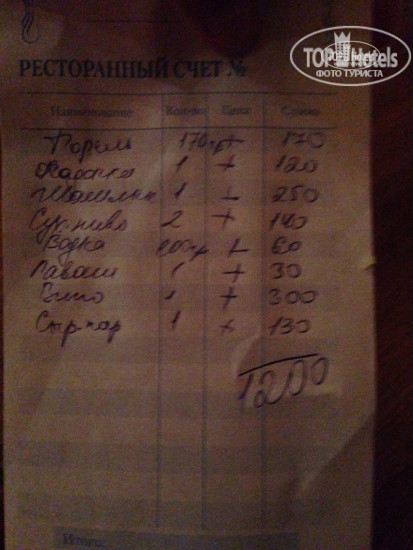 TOP Hotels
ФОТО ТУРИСТА
РЕСТОРАННЫЙ СЧЕТ №
Наименование Кол-во Цена Сумма
Форель 170гр + 170
1 + 120
Шашлык 1 + 250
Сух. пиво 2 + 140
Водка 200гр + 60
Лаваш 1 + 30
Вино 1 + 300
Сыр-нар 1 + 130
1200
Итого: